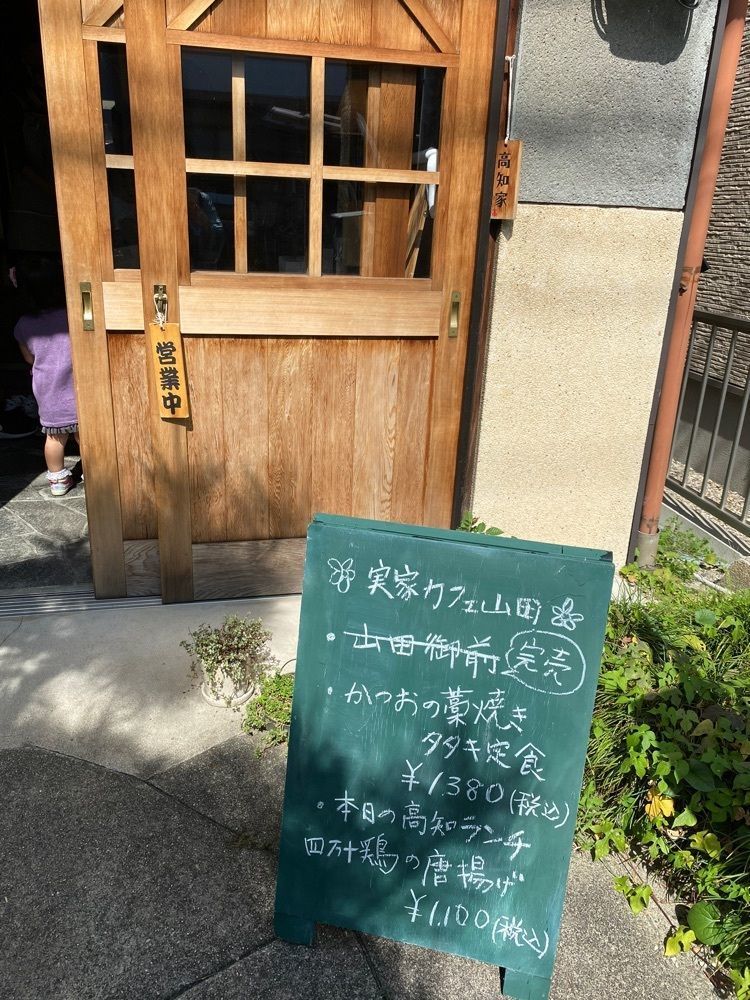 高知家
営業中
実家カフェ山田
・山田御前 完売
・かつおの藁焼き
タタキ定食
¥1,380(税込)
・本日の高知ランチ
四万十鶏の唐揚げ
¥1,100(税込)